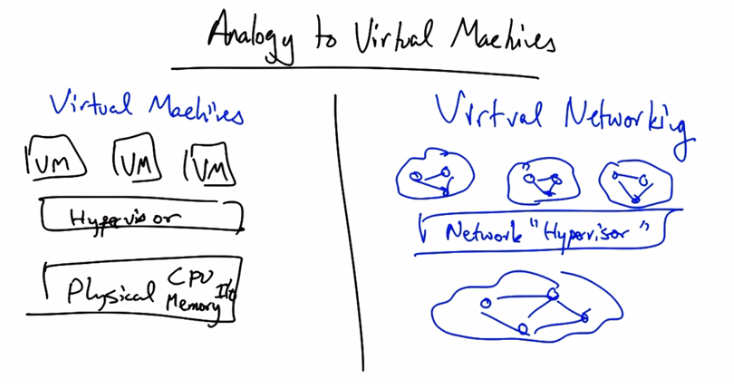 Analogy to Virtual Machines
Virtual Machines
VM VM VM
Hypervisor
Physical CPU
Memory I/O
Virtual Networking
Network "Hypervisor"